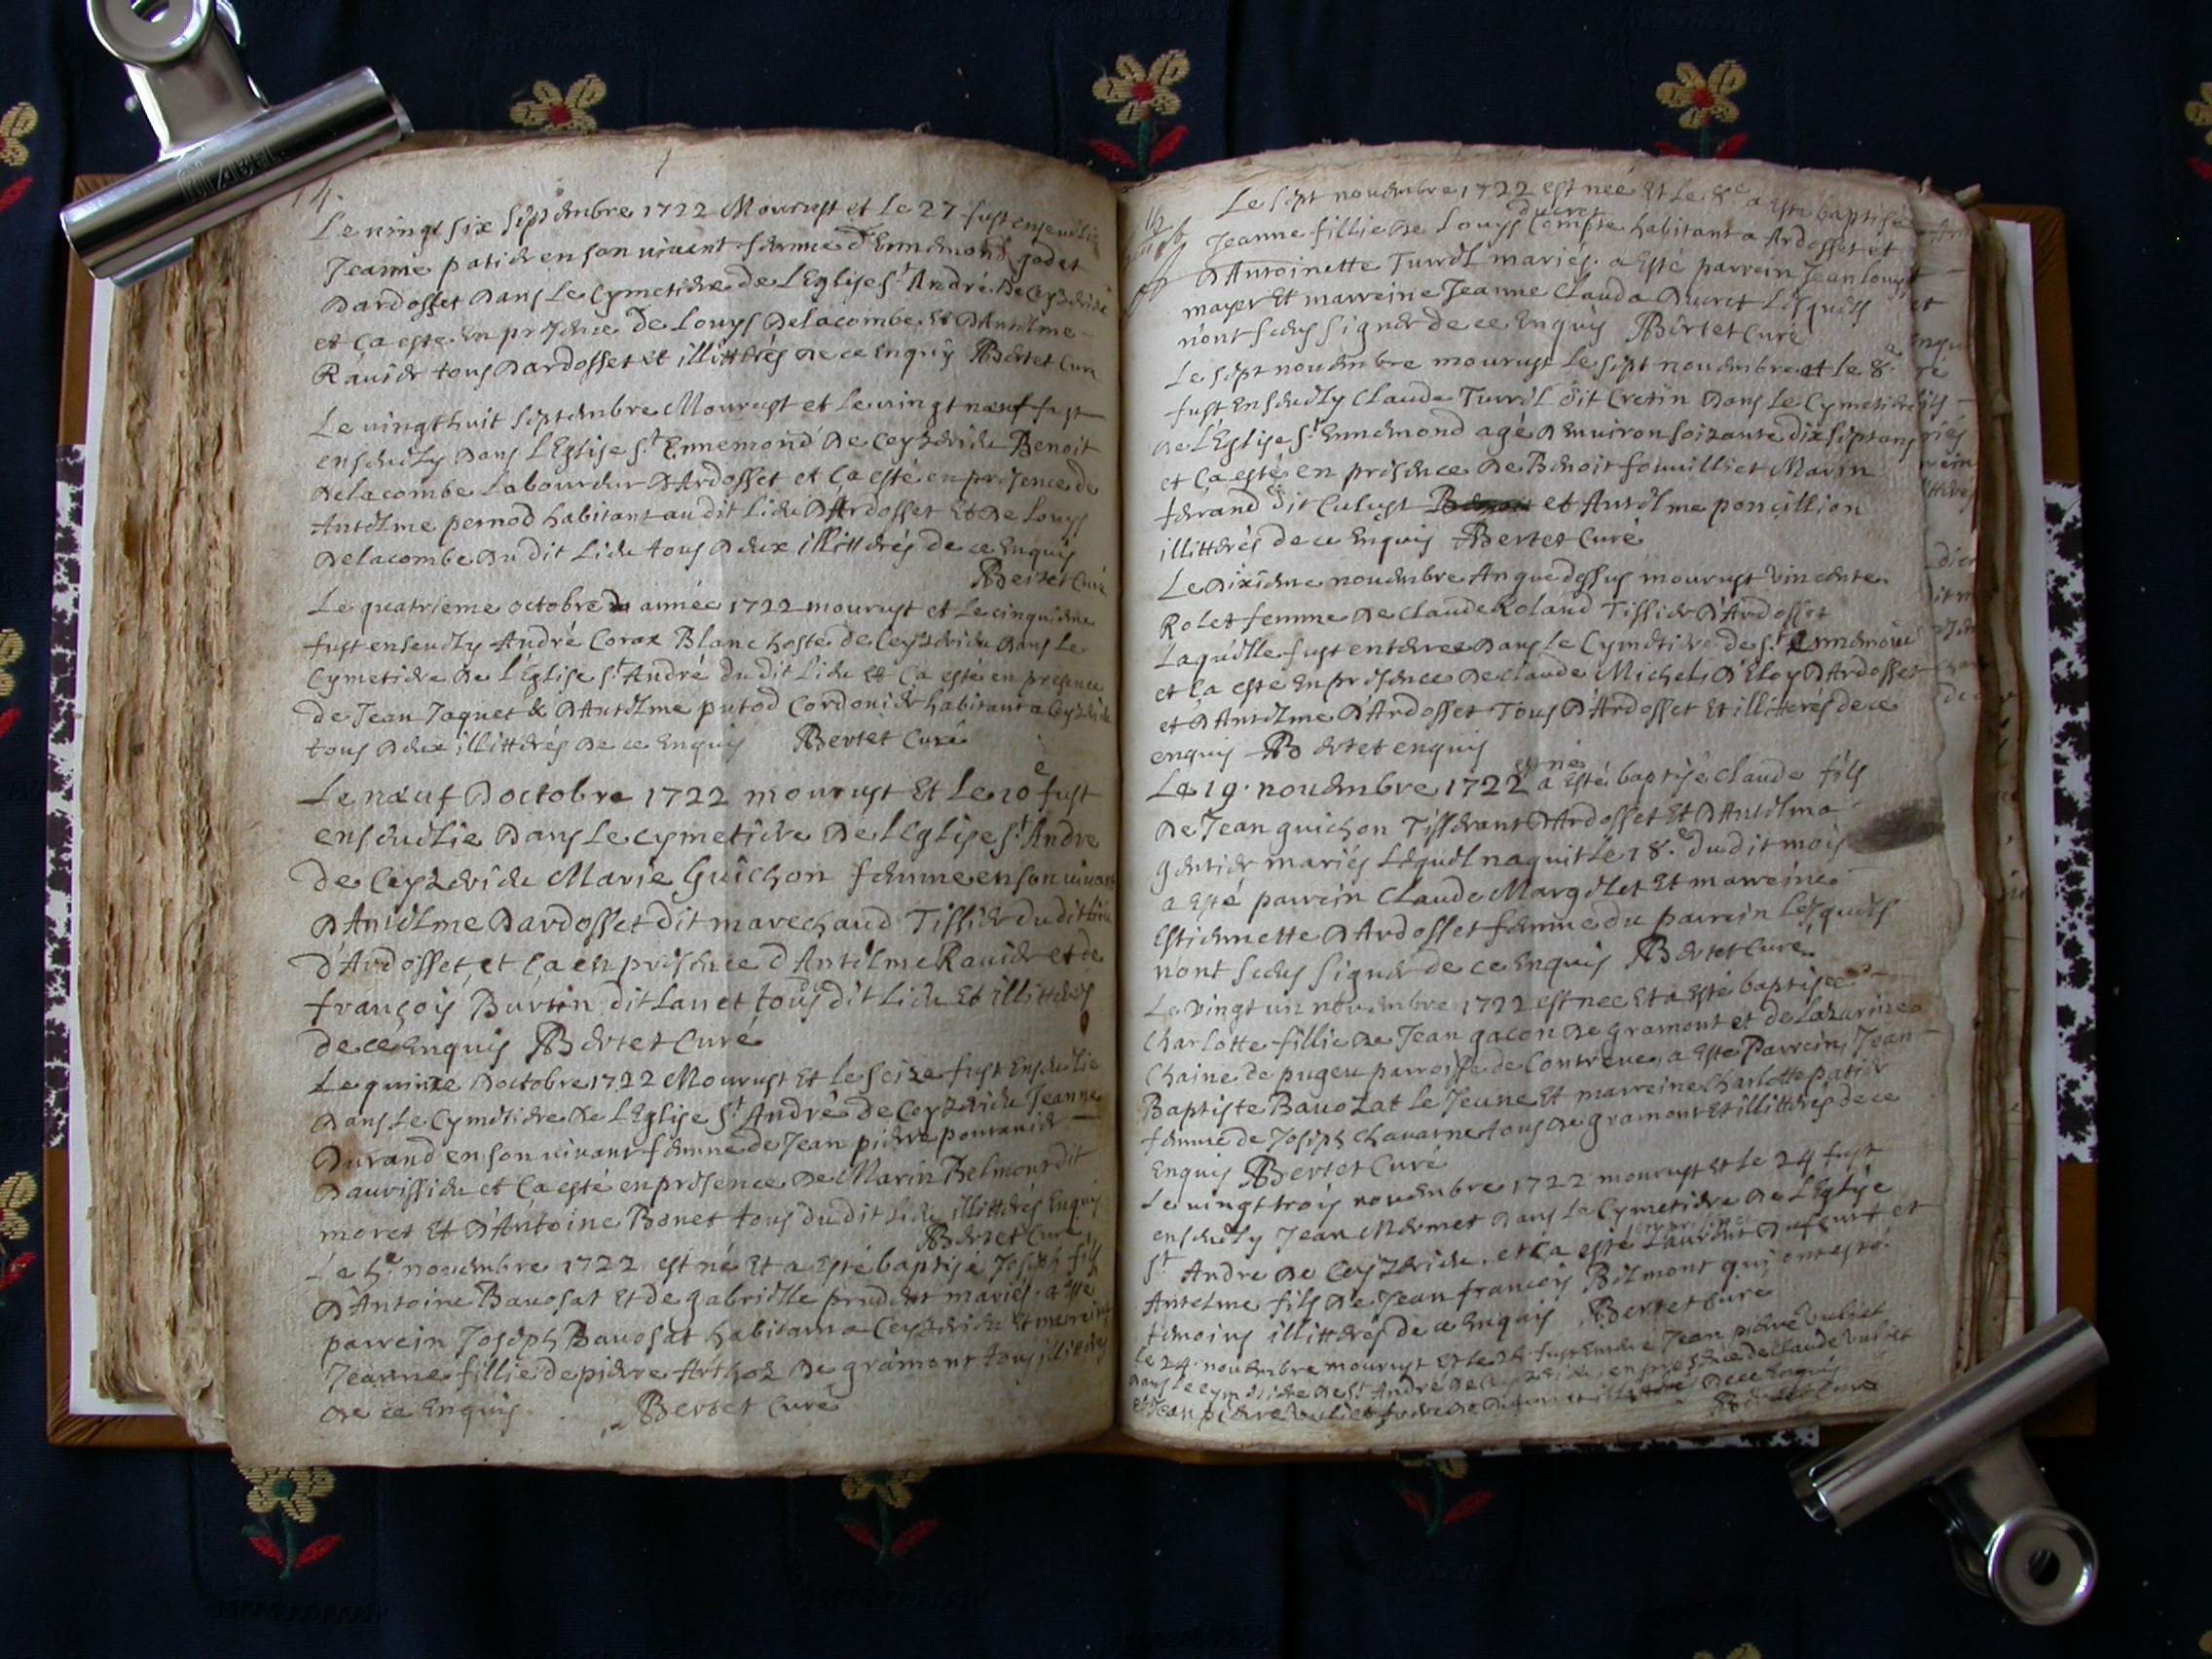 14.
Le vingt six septembre 1722 Mourust et le 27 fust ensevelie
Jeanne patier en son vivant femme d'Ennemond godet
Dardosset Dans Le Cymetiere de L'Eglise St André De Ceyzerieu
et ça esté en presence de Louys Delacombe et D'Antelme
Ravier tous Dardosset et illitterés de ce Enquis Bertet Curé
Le vingt huit septembre Mourust et Le vingt neuf fust
ensevely Dans L'Eglise St Ennemond De Ceyzerieu Benoit
Delacombe Laboureur D'Ardosset et ça esté en presence de
Antelme pernod habitant au dit Lieu D'Ardosset Et De Louys
Delacombe Du dit Lieu tous Deux illitterés de ce Enquis
Bertet Curé
Le quatrieme octobre année 1722 mourust et Le cinquieme
fust ensevely André Corax Blanc hoste de Ceyzerieu Dans Le
Cymetiere De L'Eglise St André du dit Lieu Et ça esté en presence
de Jean Jaquet & D'Antelme putod Cordonier habitant a Ceyzerieu
tous Deux illitterés De ce Enquis Bertet Curé
Le nœuf D'octobre 1722 mourust Et Le 10e fust
ensevelie Dans Le Cymetiere De L'Eglise St Andre
de Ceyzerieu Marie Guichon femme en son vivant
D'Antelme Dardosset dit marechaud Tissier du dit Lieu
d'Ardosset, et ça en presence d'Antelme Ravier et de
françois Burtin dit Lanet tous du dit Lieu Et illitterés
de ce Enquis Bertet Curé
Le quinze D'octobre 1722 Mourust Et Le seize fust Ensevelie
Dans Le Cymetiere De L'Eglise St André de Ceyzerieu Jeanne
Durand en son vivant femme de Jean pierre
D'avrissieu et ça esté en presence De Marin Belmont dit
moret Et D'Antoine Bonet tous du dit Lieu illitterés Enquis
Bertet Curé
Le 5e novembre 1722 est né Et a Esté baptisé Joseph fils
D'Antoine Bavosat Et de gabrielle prudent mariés. a Esté
parrein Joseph Bavosat habitant a Ceyzerieu Et marreine
Jeanne fillie de pierre Arthoz De gramont tous illitterés
de ce Enquis. Bertet Curé
Le sept novembre 1722 est neé Et Le 8e a esté baptisée
ducret
Jeanne fillie De Louys Compte habitant a Ardosset et
D'Antoinette Turrel mariés. a Esté parrein Jean Louys
mayer Et marreine Jeanne Clauda Ducret Lesquels
n'ont sceus signer de ce Enquis Bertet Curé
Le sept novembre mourust Le sept novembre et le 8e
fust Ensevely Claude Turrel dit Cretin Dans Le Cymetiere
De L'Eglise St Ennemond agé D'environ soizante dix sept ans
et ça esté en presence De Benoit fouvilliet Marin
ferand dit Culust et Antelme poncillion
illitterés de ce Enquis Bertet Curé
Le Dixieme novembre An que dessus mourust Vincente
Rolet femme De Claude Roland Tissier D'Ardosset
Laquelle fust enterree Dans Le Cymetiere de St Ennemond
et ça esté En presence De Claude Michel D'Eloy D'Ardosset
et D'Antelme D'Ardosset Tous D'Ardosset Et illitterés de ce
enquis Bertet enquis
est né
Le 19. novembre 1722 a Esté baptisé Claude fils
De Jean guichon Tisserant D'Ardosset Et D'Antelma
gentier mariés Lequel naquit Le 18.e du dit mois
a Esté parrein Claude Margelet Et marreine
Estiennette D'Ardosset femme du parrein Lesquels
n'ont sceus signer de ce Enquis Bertet Curé
Le vingt un novembre 1722 est nee Et a Esté baptisee
Charlotte fillie De Jean gacon De gramont et de Lazarine
Chaine de pugeu parroisse de Contreve, a Esté Parrein Jean
Baptiste Bavozat Le Jeune Et marreine Charlotte patier
femme de Joseph Chavarne tous De gramont Et illitterés de ce
Enquis Bertet Curé
Le vingt trois novembre 1722 mourust Et Le 24 fust
ensevely Jean Mermet Dans Le Cymetiere De L'Eglise
St Andre De Ceyzerieu. et ça esté Laurent Dufourt et
Antelme fils De Jean françois Belmont qui ont esté
temoins illitterés de ce Enquis Bertet Curé
Le 24. novembre mourust Et Le 25 fust Jean pierre Vuliet
Dans Le Cymetiere De St André De Ceyzerieu, en presence De Claude Vuliet
et Jean pierre Vuliet illitterés De ce Enquis
Bertet Curé